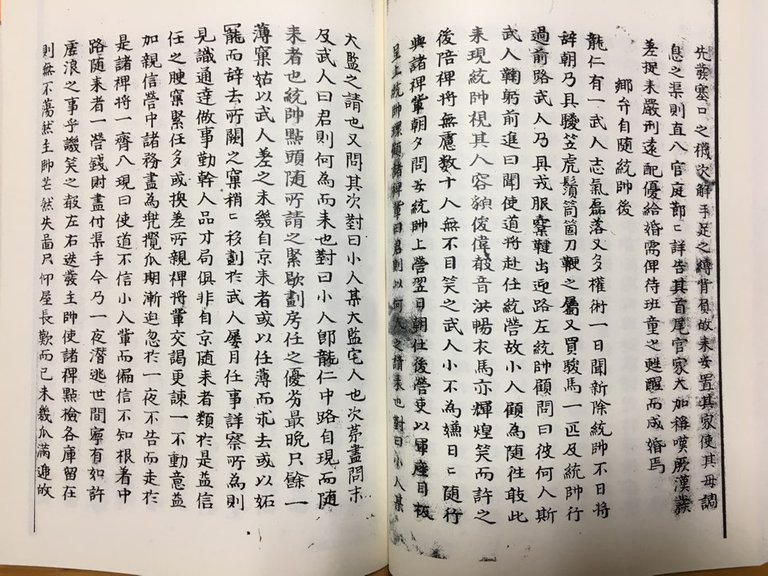 先發塞口之機次解手足之縛背負故来安置其家使其母調
息之渠則直入官庭節〻詳告其首尾官家大加稱嘆厥漢発
差捉来嚴刑遠配優給婚需俾待班童之甦醒而成婚焉
鄉弁自隨統帥後
龍仁有一武人志氣磊落又多權術一日聞新除統帥不日將
辞朝乃具驄笠虎鬚筒箇刀鞭之屬又買駿馬一匹及統帥行
過前路武人乃具戎服櫜鞬出迎路左統帥顧問曰彼何人斯
武人鞠躬前進曰聞使道將赴任統營故小人願為隨徃敢此
来現統帥視其人容貌俊偉聲音洪暢衣馬亦輝煌笑而許之
後陪裨將無慮數十人無不目笑之武人小不為嫌日〻隨行
與諸裨輩朝夕問安統帥上營翌日朝仕後營吏以軍座目板
呈上統帥環顧諸裨輩曰君則以何人之請来也對曰小人某
大監之請也又問其次對曰小人某大監宅人也次苐盡問末
及武人曰君則何為而来也對曰小人卽龍仁中路自現而隨
来者也統帥點頭隨所請之緊歇劃房任之優劣最晩只餘一
薄窠姑以武人差之未幾自京来者或以任薄而求去或以妬
寵而辞去所闕之窠稍〻移劃扵武人屢月任事詳察所為則
見識通達做事勤幹人品才局俱非自京隨来者類扵是益信
任之腴窠緊任多或換差所親裨將輩交謁更諫一不動意益
加親信營中諸務盡為兠攬瓜期漸迫忽扵一夜不告而走扵
是諸裨將一齊入現曰使道不信小人輩而偏信不知根着中
路隨来者一營錢財盡付渠手今乃一夜潛逃世間寧有如許
虛浪之事乎譏笑之聲左右迭發主帥使諸裨點檢各庫留在
則無不蕩然主帥茫然失啚只仰屋長歎而已未幾瓜滿適故